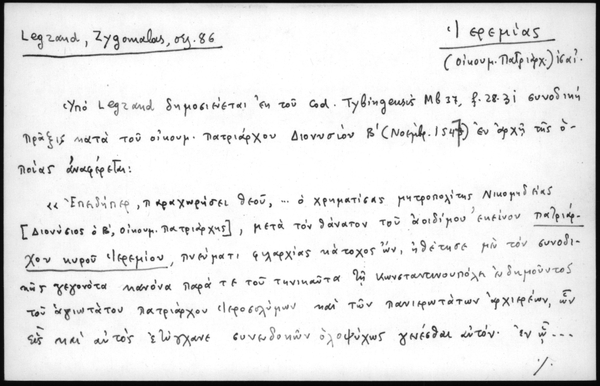 Legrand, Zygomalas, σελ. 86
Ἱερεμίας
(οἰκουμ. Πατριάρχ.)
Ὑπό Legrand δημοσιεύεται ἐκ τοῦ Cod. Tybingensis Mb 37, f. 28-31 συνοδική
πρᾶξις κατά τοῦ οἰκουμ. πατριάρχου Διονυσίου Β' (Νοέμβρ. 154) ἐν ἀρχῇ τῆς ὁ-
ποίας ἀναφέρεται:
«Ἐπειδήπερ, παραχωρήσει θεοῦ, ... ὁ χρηματίσας μητροπολίτης Νικομηδείας
[Διονύσιος ὁ Β', οἰκουμ. πατριάρχης], μετά τόν θάνατον τοῦ ἀοιδίμου ἐκείνου πατριάρ-
χου κυροῦ Ἱερεμίου, πνεύματι φιλαρχίας κάτοχος ὤν, ἠθέτησε μέν τόν συνοδι-
κῶς γεγονότα κανόνα παρά τε τοῦ τηνικαῦτα τῇ Κωνσταντινουπόλει ἐνδημοῦντος
τοῦ ἁγιωτάτου πατριάρχου Ἱεροσολύμων καί τῶν πανιερωτάτων ἀρχιερέων, ὧν
εἷς καί αὐτός ἐτύγχανε συνευδοκῶν ὁλοψύχως γενέσθαι αὐτόν. ἐν ᾧ ...
./.